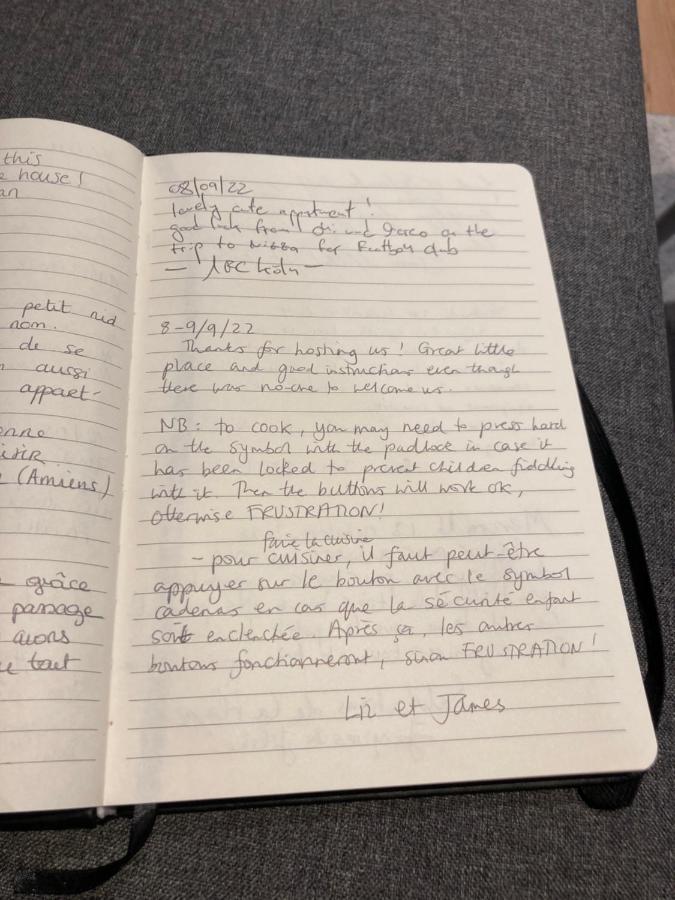 this
house!
an
petit nid
nom.
de se
aussi
appart-
SURTIR
(Amiens)
grâce
passage
avons
tout
08/09/22
lovely cute appartment!
good luck from and on the
trip to for Football club
8-9/9/22
Thanks for hosting us! Great little
place and good instructions even though
there was no-one to welcome us.
NB: to cook, you may need to press hard
on the symbol with the padlock in case it
has been locked to prevent children fiddling
with it. Then the buttons will work ok,
otherwise FRUSTRATION!
faire la cuisine
- pour cuisiner, il faut peut-être
appuyer sur le bouton avec le symbol
cadenas en cas que la sécurité enfant
soit enclenchée. Après ça, les autres
boutons fonctionneront, sinon FRUSTRATION!
Liz et James